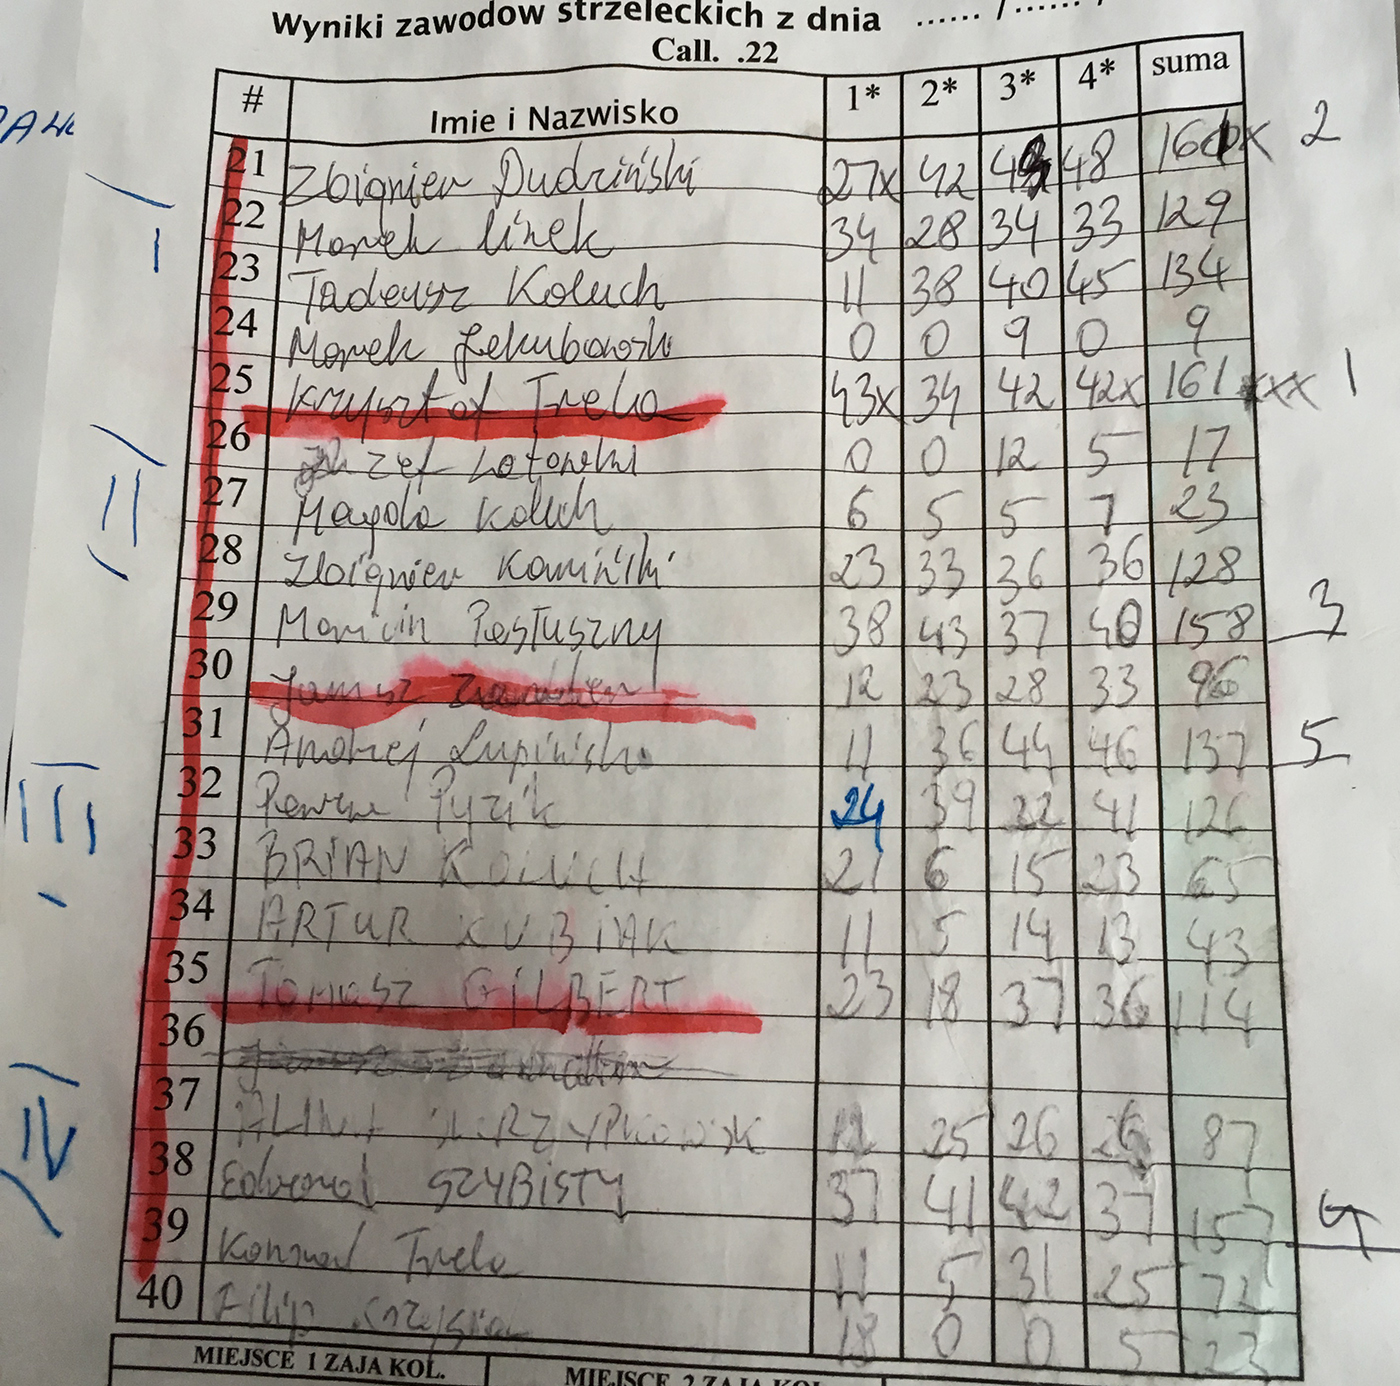 Wyniki zawodów strzeleckich z dnia ...... / ...... /
Call. .22
# Imie i Nazwisko 1* 2* 3* 4* suma
21 Zbigniew Dudziński 27x 42 48 161x 2
22 Marek Linek 34 28 34 33 129
23 Tadeusz Koluch 11 38 40 45 134
24 Marek 0 0 9 0 9
25 Krzysztof Trela 43x 34 42 42x 161 xxx 1
26 0 0 12 5 17
27 Magda Koluch 6 5 5 7 23
28 Zbigniew Kamiński 23 33 36 36 128
29 Marcin Postuszny 38 43 37 40 158 3
30 Janusz 12 23 28 33 96
31 Andrzej Lupiński 11 36 44 46 137 5
32 Pyzik 24 39 22 41 126
33 BRIAN KOLUCH 21 6 15 23 65
34 ARTUR KUBIAK 11 5 14 13 43
35 Tomasz GILBERT 23 18 37 36 114
36
37 ALINA 25 26 26 87
38 Edward SZYBISTY 37 41 42 37 157 4
39 Konrad Trela 11 5 31 25 72
40 Filip 18 0 0 5 23
MIEJSCE 1 ZAJA KOL.
MIEJSCE 2 ZAJA KOL